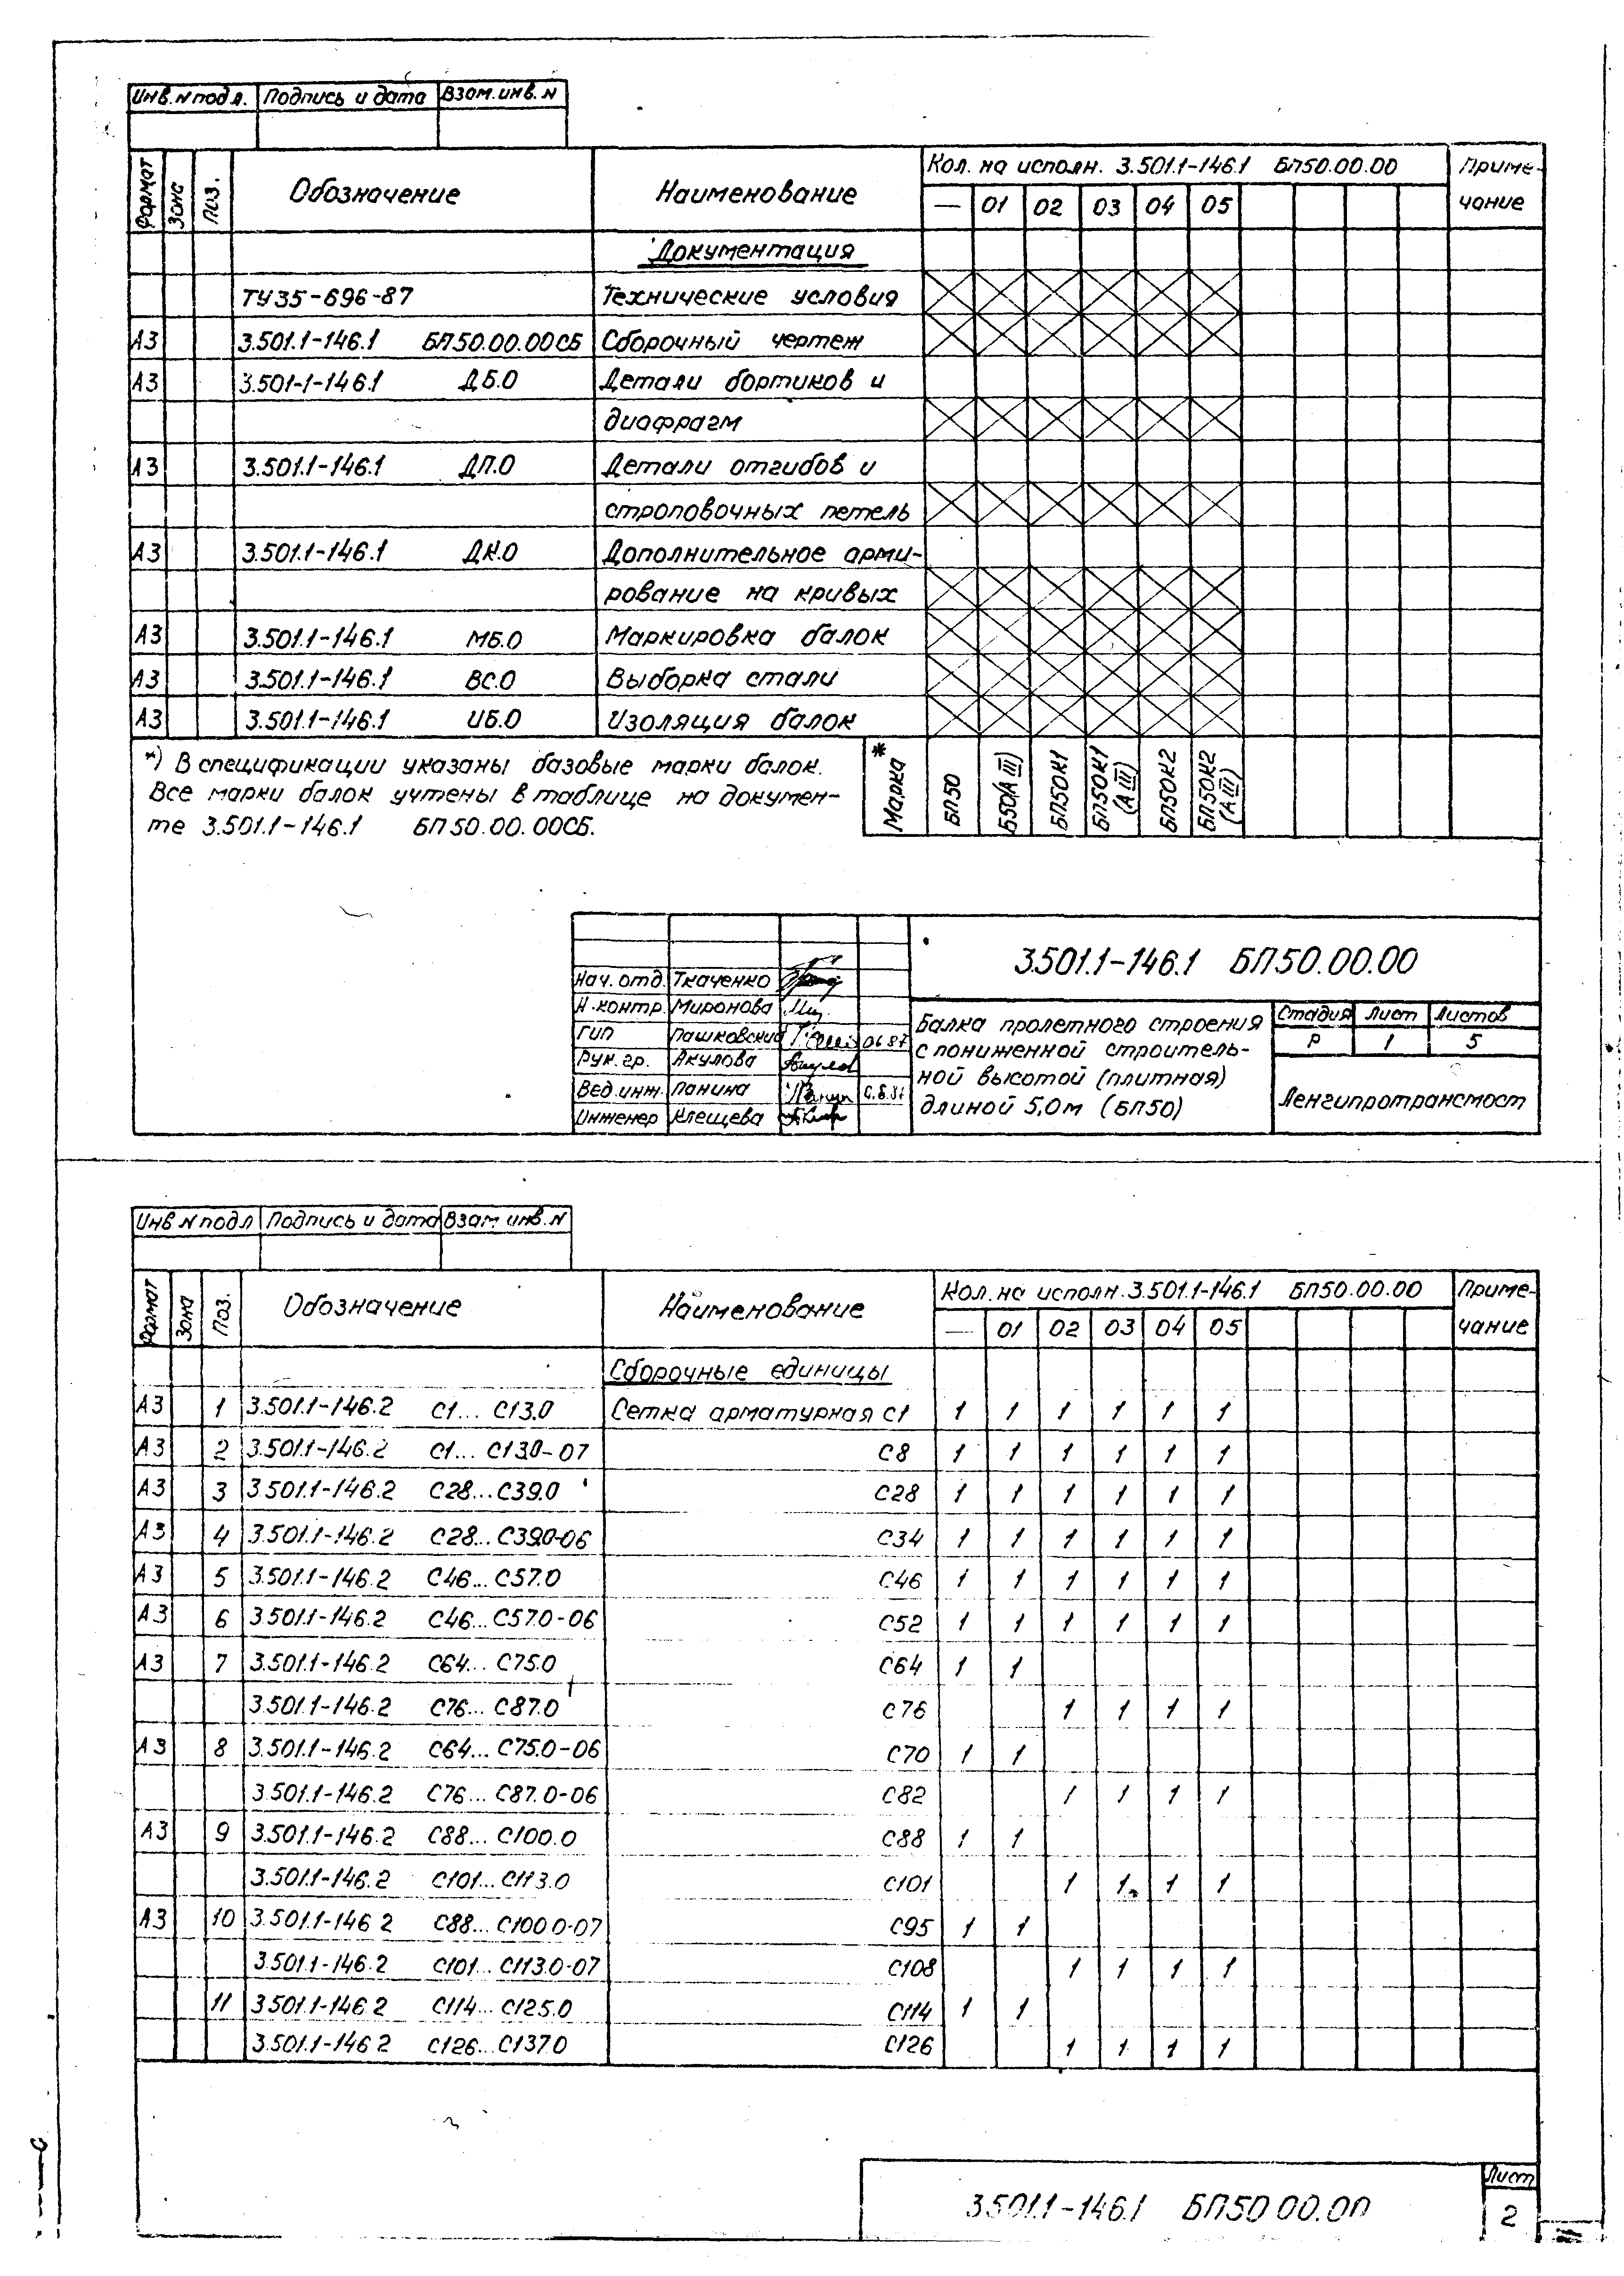 Инв. N подл. Подпись и дата Взам. инв. N
Формат Зона Поз. Обозначение Наименование Кол. на исполн. 3.501.1-146.1 БП50.00.00 Приме-
— 01 02 03 04 05 чание
Документация
ТУ35-696-87 Технические условия
А3 3.501.1-146.1 БП50.00.00СБ Сборочный чертеж
А3 3.501-1-146.1 ДБ.0 Детали бортиков и
диафрагм
А3 3.501.1-146.1 ДП.0 Детали отгибов и
строповочных петель
А3 3.501.1-146.1 ДК.0 Дополнительное арми-
рование на кривых
А3 3.501.1-146.1 МБ.0 Маркировка балок
А3 3.501.1-146.1 ВС.0 Выборка стали
А3 3.501.1-146.1 ИБ.0 Изоляция балок
*) В спецификации указаны базовые марки балок.
Все марки балок учтены в таблице на докумен-
те 3.501.1-146.1 БП50.00.00СБ.
Марка* БП50 Б50(А III) БП50К1 БП50К1 (А III) БП50К2 БП50К2 (А III)
3.501.1-146.1 БП50.00.00
Нач. отд. Ткаченко
Н. контр. Миронова
ГИП Пашковский 06 87
Рук. гр. Акулова
Вед. инж. Панина
Инженер Клещева
Балка пролетного строения
с пониженной строитель-
ной высотой (плитная)
длиной 5,0м (БП50)
Стадия Лист Листов
Р 1 5
Ленгипротрансмост
Инв N подл Подпись и дата Взам инв. N
Формат Зона Поз. Обозначение Наименование Кол. на исполн. 3.501.1-146.1 БП50.00.00 Приме-
— 01 02 03 04 05 чание
Сборочные единицы
А3 1 3.501.1-146.2 С1... С13.0 Сетка арматурная С1 1 1 1 1 1 1
А3 2 3.501.1-146.2 С1... С13.0-07 С8 1 1 1 1 1 1
А3 3 3.501.1-146.2 С28... С39.0 С28 1 1 1 1 1 1
А3 4 3.501.1-146.2 С28... С39.0-06 С34 1 1 1 1 1 1
А3 5 3.501.1-146.2 С46... С57.0 С46 1 1 1 1 1 1
А3 6 3.501.1-146.2 С46... С57.0-06 С52 1 1 1 1 1 1
А3 7 3.501.1-146.2 С64... С75.0 С64 1 1
3.501.1-146.2 С76... С87.0 С76 1 1 1 1
А3 8 3.501.1-146.2 С64... С75.0-06 С70 1 1
3.501.1-146.2 С76... С87.0-06 С82 1 1 1 1
А3 9 3.501.1-146.2 С88... С100.0 С88 1 1
3.501.1-146.2 С101... С113.0 С101 1 1 1 1
А3 10 3.501.1-146 2 С88... С100.0-07 С95 1 1
3.501.1-146.2 С101... С113.0-07 С108 1 1 1 1
11 3.501.1-146.2 С114... С125.0 С114 1 1
3.501.1-146 2 С126... С137.0 С126 1 1 1 1
3.501.1-146.1 БП50 00.00
Лист
2